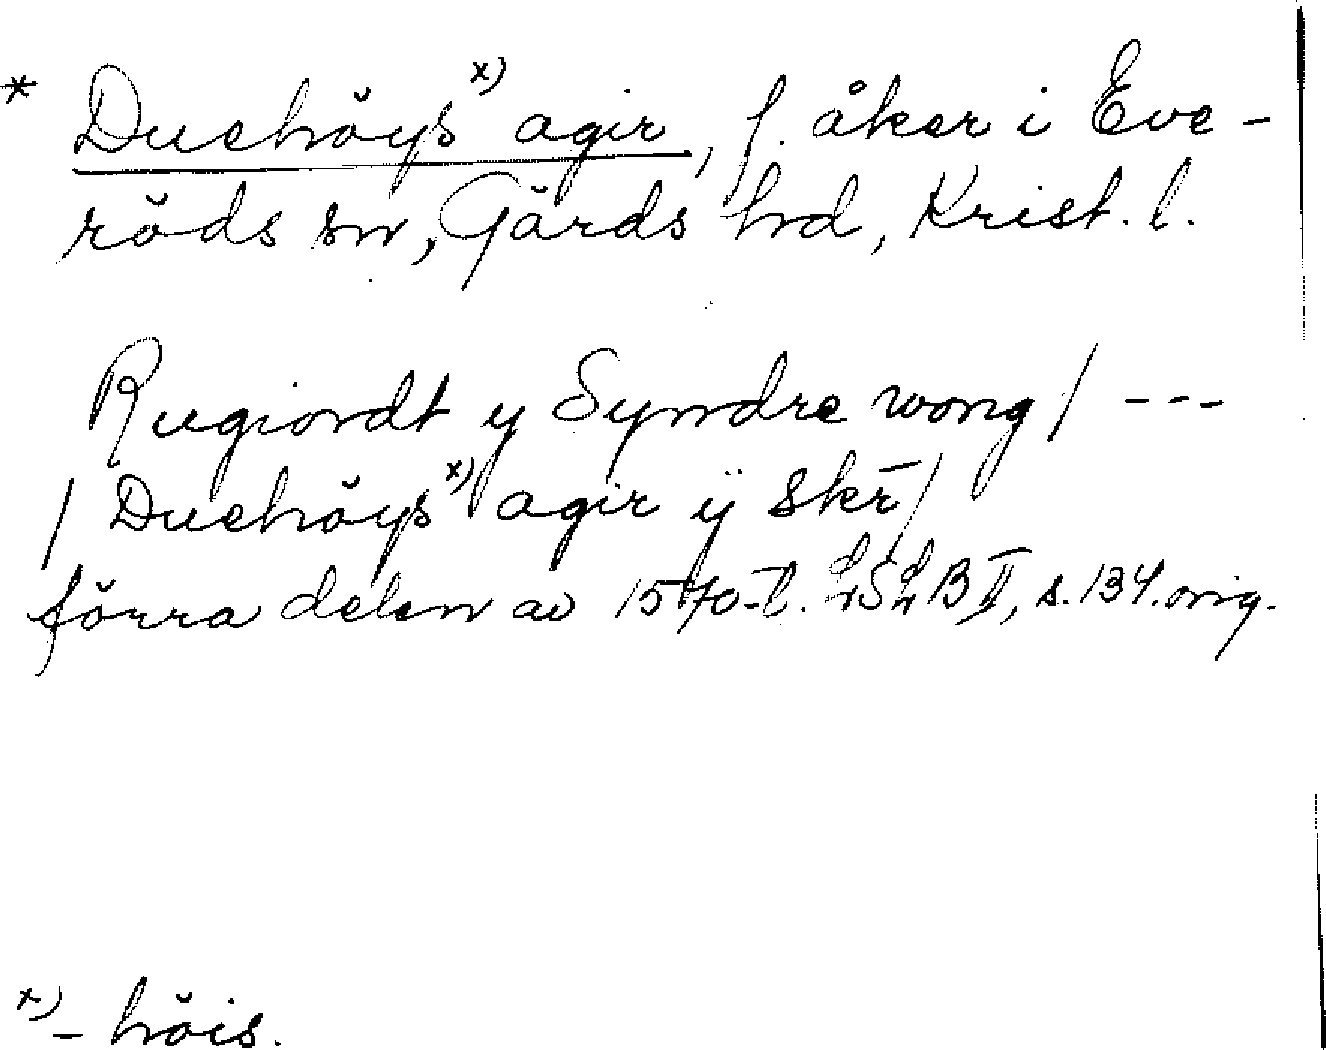 * Duehöys ˣ⁾ agir, f. åker i Eve-
röds sn, Gärds hd, Krist. l.
Rugiordt y Syndre wong / ---
/ Duehöys ˣ⁾ agir ÿ skr̄ /
förra delen av 1570-t. LSLB II, s. 134. orig.
ˣ⁾ - höis.